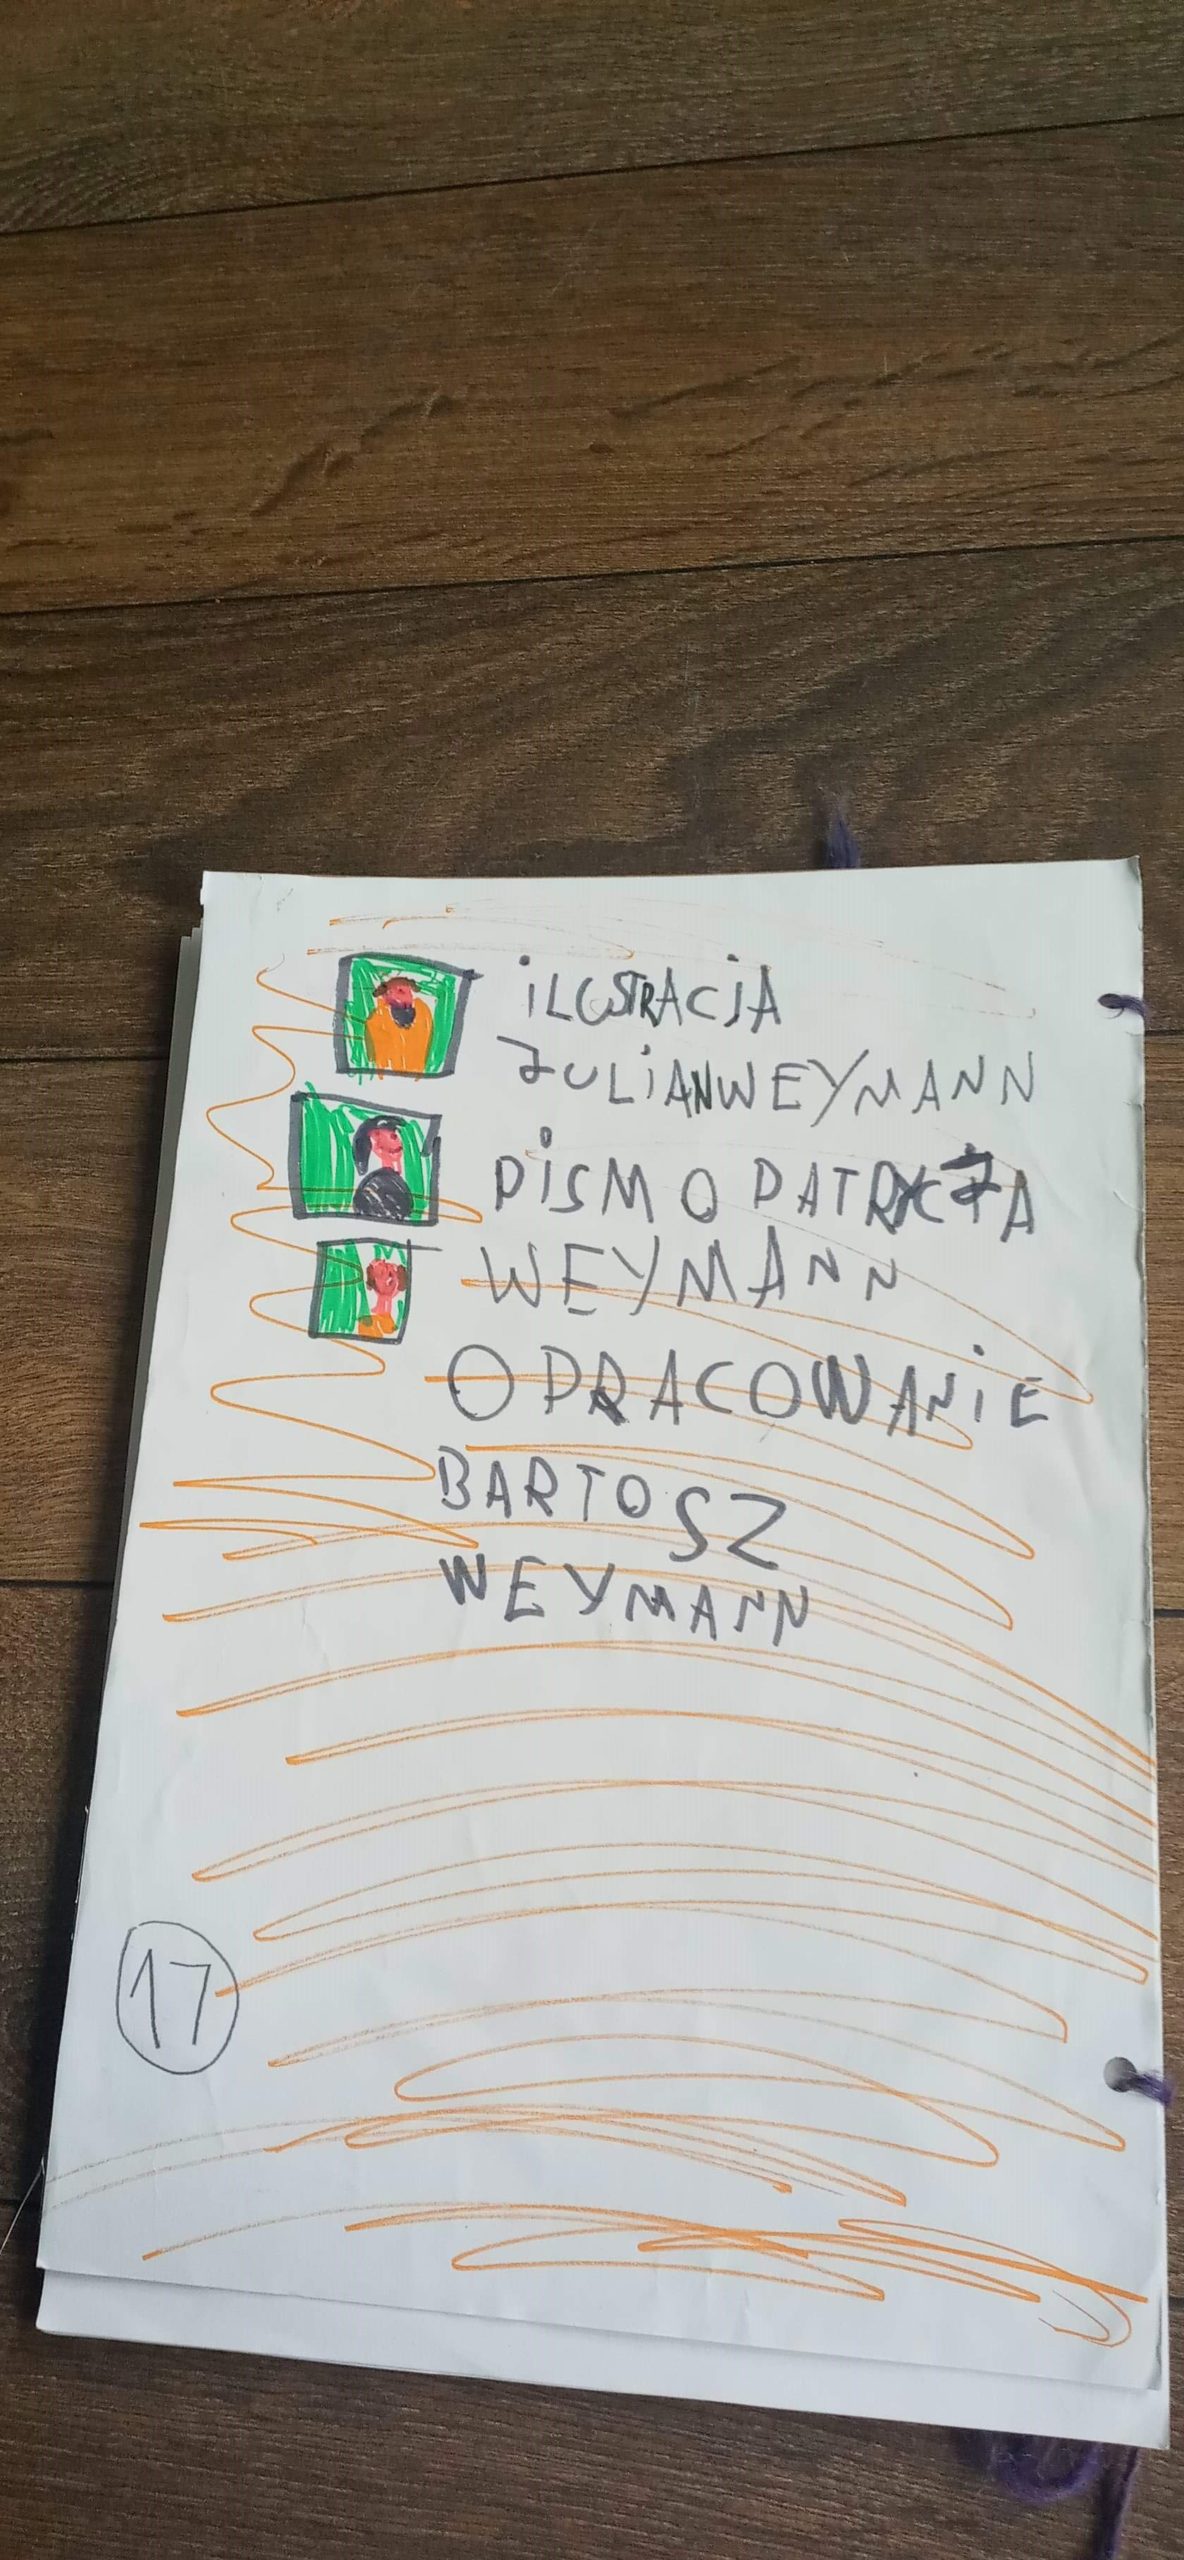 iLUSTRACJA
JULiANWEYMANN
PiSMO PATRYCJA
WEYMANN
OPRACOWANiE
BARTOSZ
WEYMANN
17